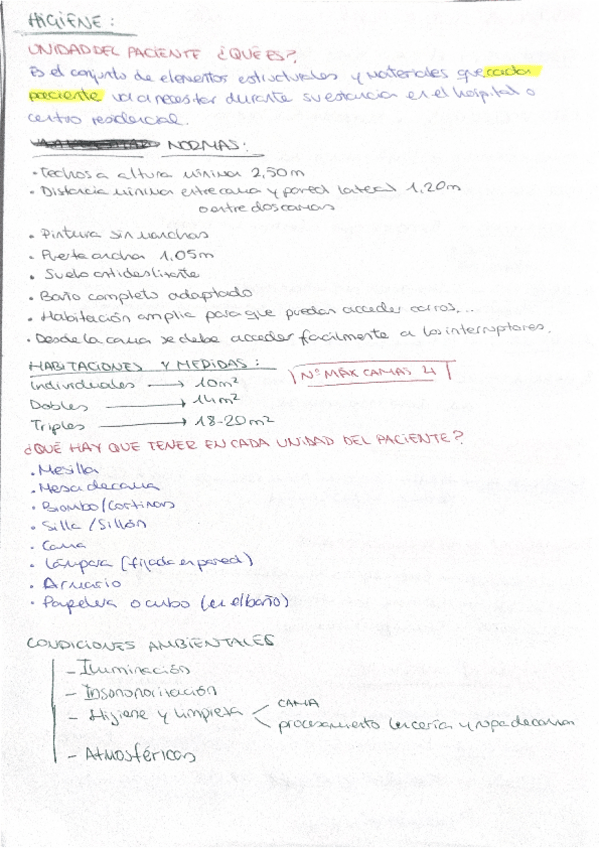 HIGIENE:
UNIDAD DEL PACIENTE ¿QUÉ ES?
Es el conjunto de elementos estructurales y materiales que cada
paciente va a necesitar durante su estancia en el hospital o
centro residencial.
NORMAS:
• Techos a altura mínima 2,50m
• Distancia mínima entre cama y pared lateral 1,20m
o entre dos camas
• Pintura sin manchas
• Puerta ancha 1,05m
• Suelo antideslizante
• Baño completo adaptado
• Habitación amplia para que puedan acceder carros,...
• Desde la cama se debe acceder facilmente a los interruptores.
HABITACIONES Y MEDIDAS: Nº MÁX CAMAS 4
Individuales → 10m²
Dobles → 14m²
Triples → 18-20m²
¿QUÉ HAY QUE TENER EN CADA UNIDAD DEL PACIENTE?
• Mesilla
• Mesa de cama
• Biombo/Cortinas
• Silla/Sillón
• Cama
• Lámpara (fijada en pared)
• Armario
• Papelera o cubo (en el baño)
CONDICIONES AMBIENTALES
- Iluminación
- Insonorización
- Higiene y limpieza < CAMA
procesamiento lencería y ropa de cama
- Atmosféricas